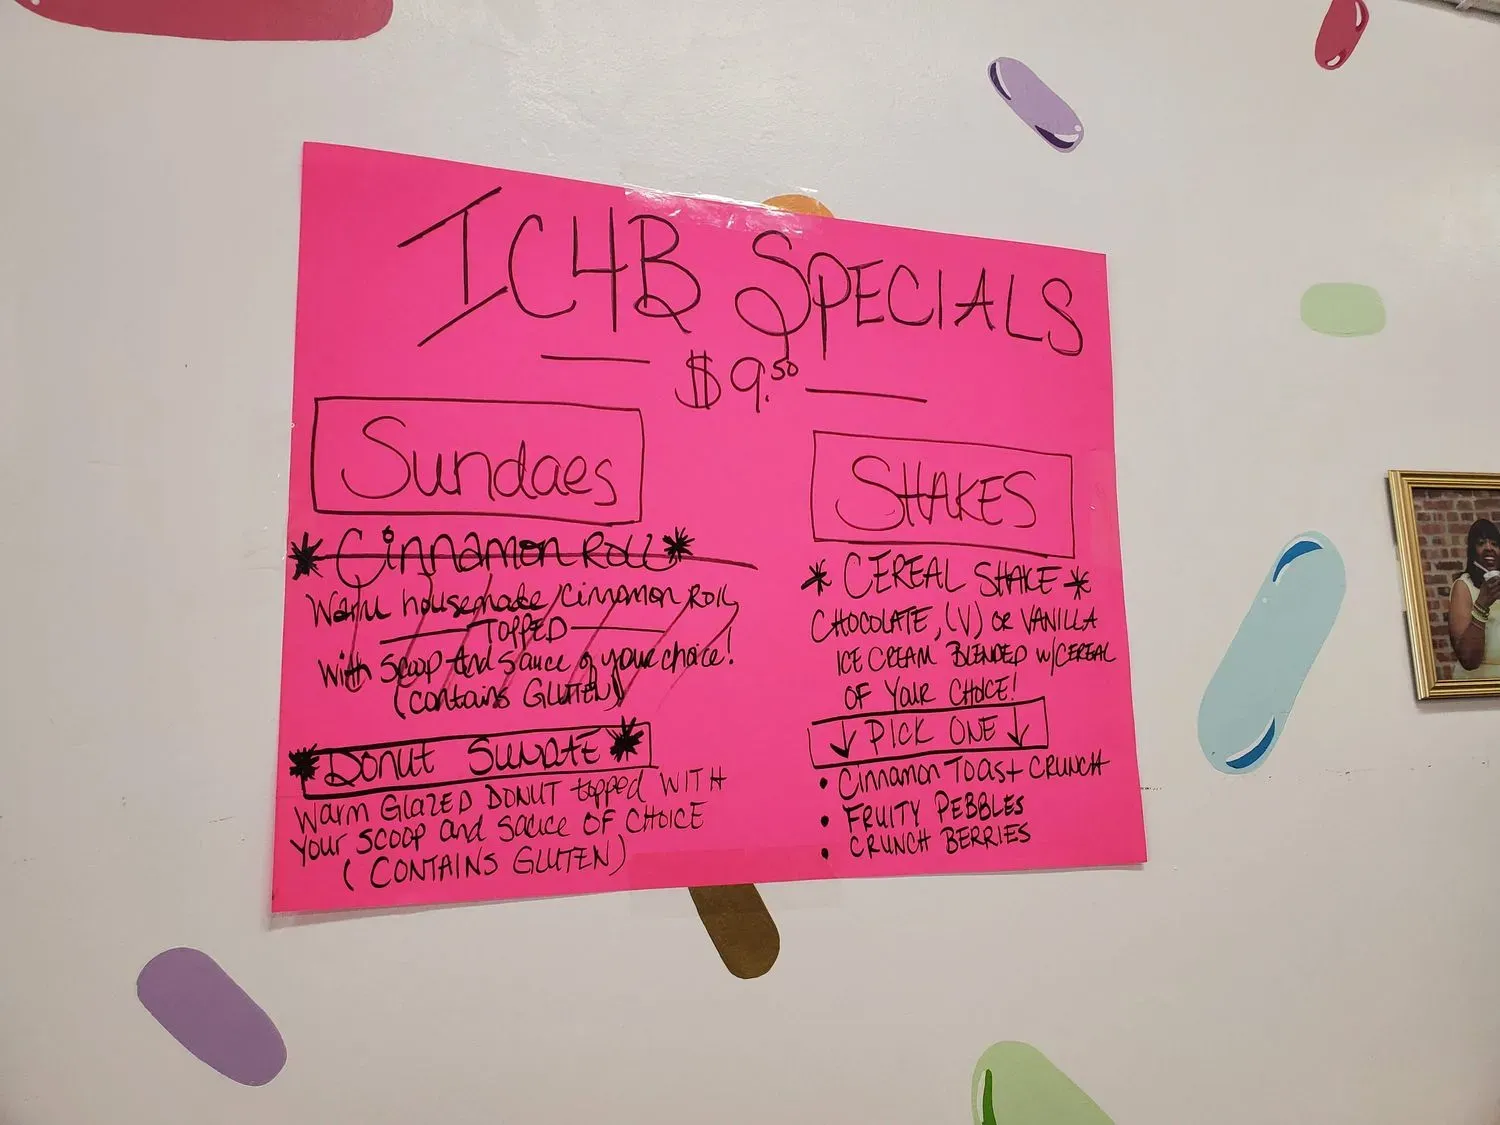 IC4B SPECIALS
$9.50
Sundaes
Cinnamon Roll
Warm housemade cinnamon Roll
TOPPED
with scoop and sauce of your choice!
(contains GLUTEN)
DONUT SUNDAE
Warm GLAZED DONUT topped WITH
your SCOOP and SAUCE OF CHOICE
(CONTAINS GLUTEN)
SHAKES
CEREAL SHAKE
CHOCOLATE, (V) OR VANILLA
ICE CREAM BLENDED W/CEREAL
OF YOUR CHOICE!
↓ PICK ONE ↓
• Cinnamon TOAST CRUNCH
• FRUITY PEBBLES
• CRUNCH BERRIES